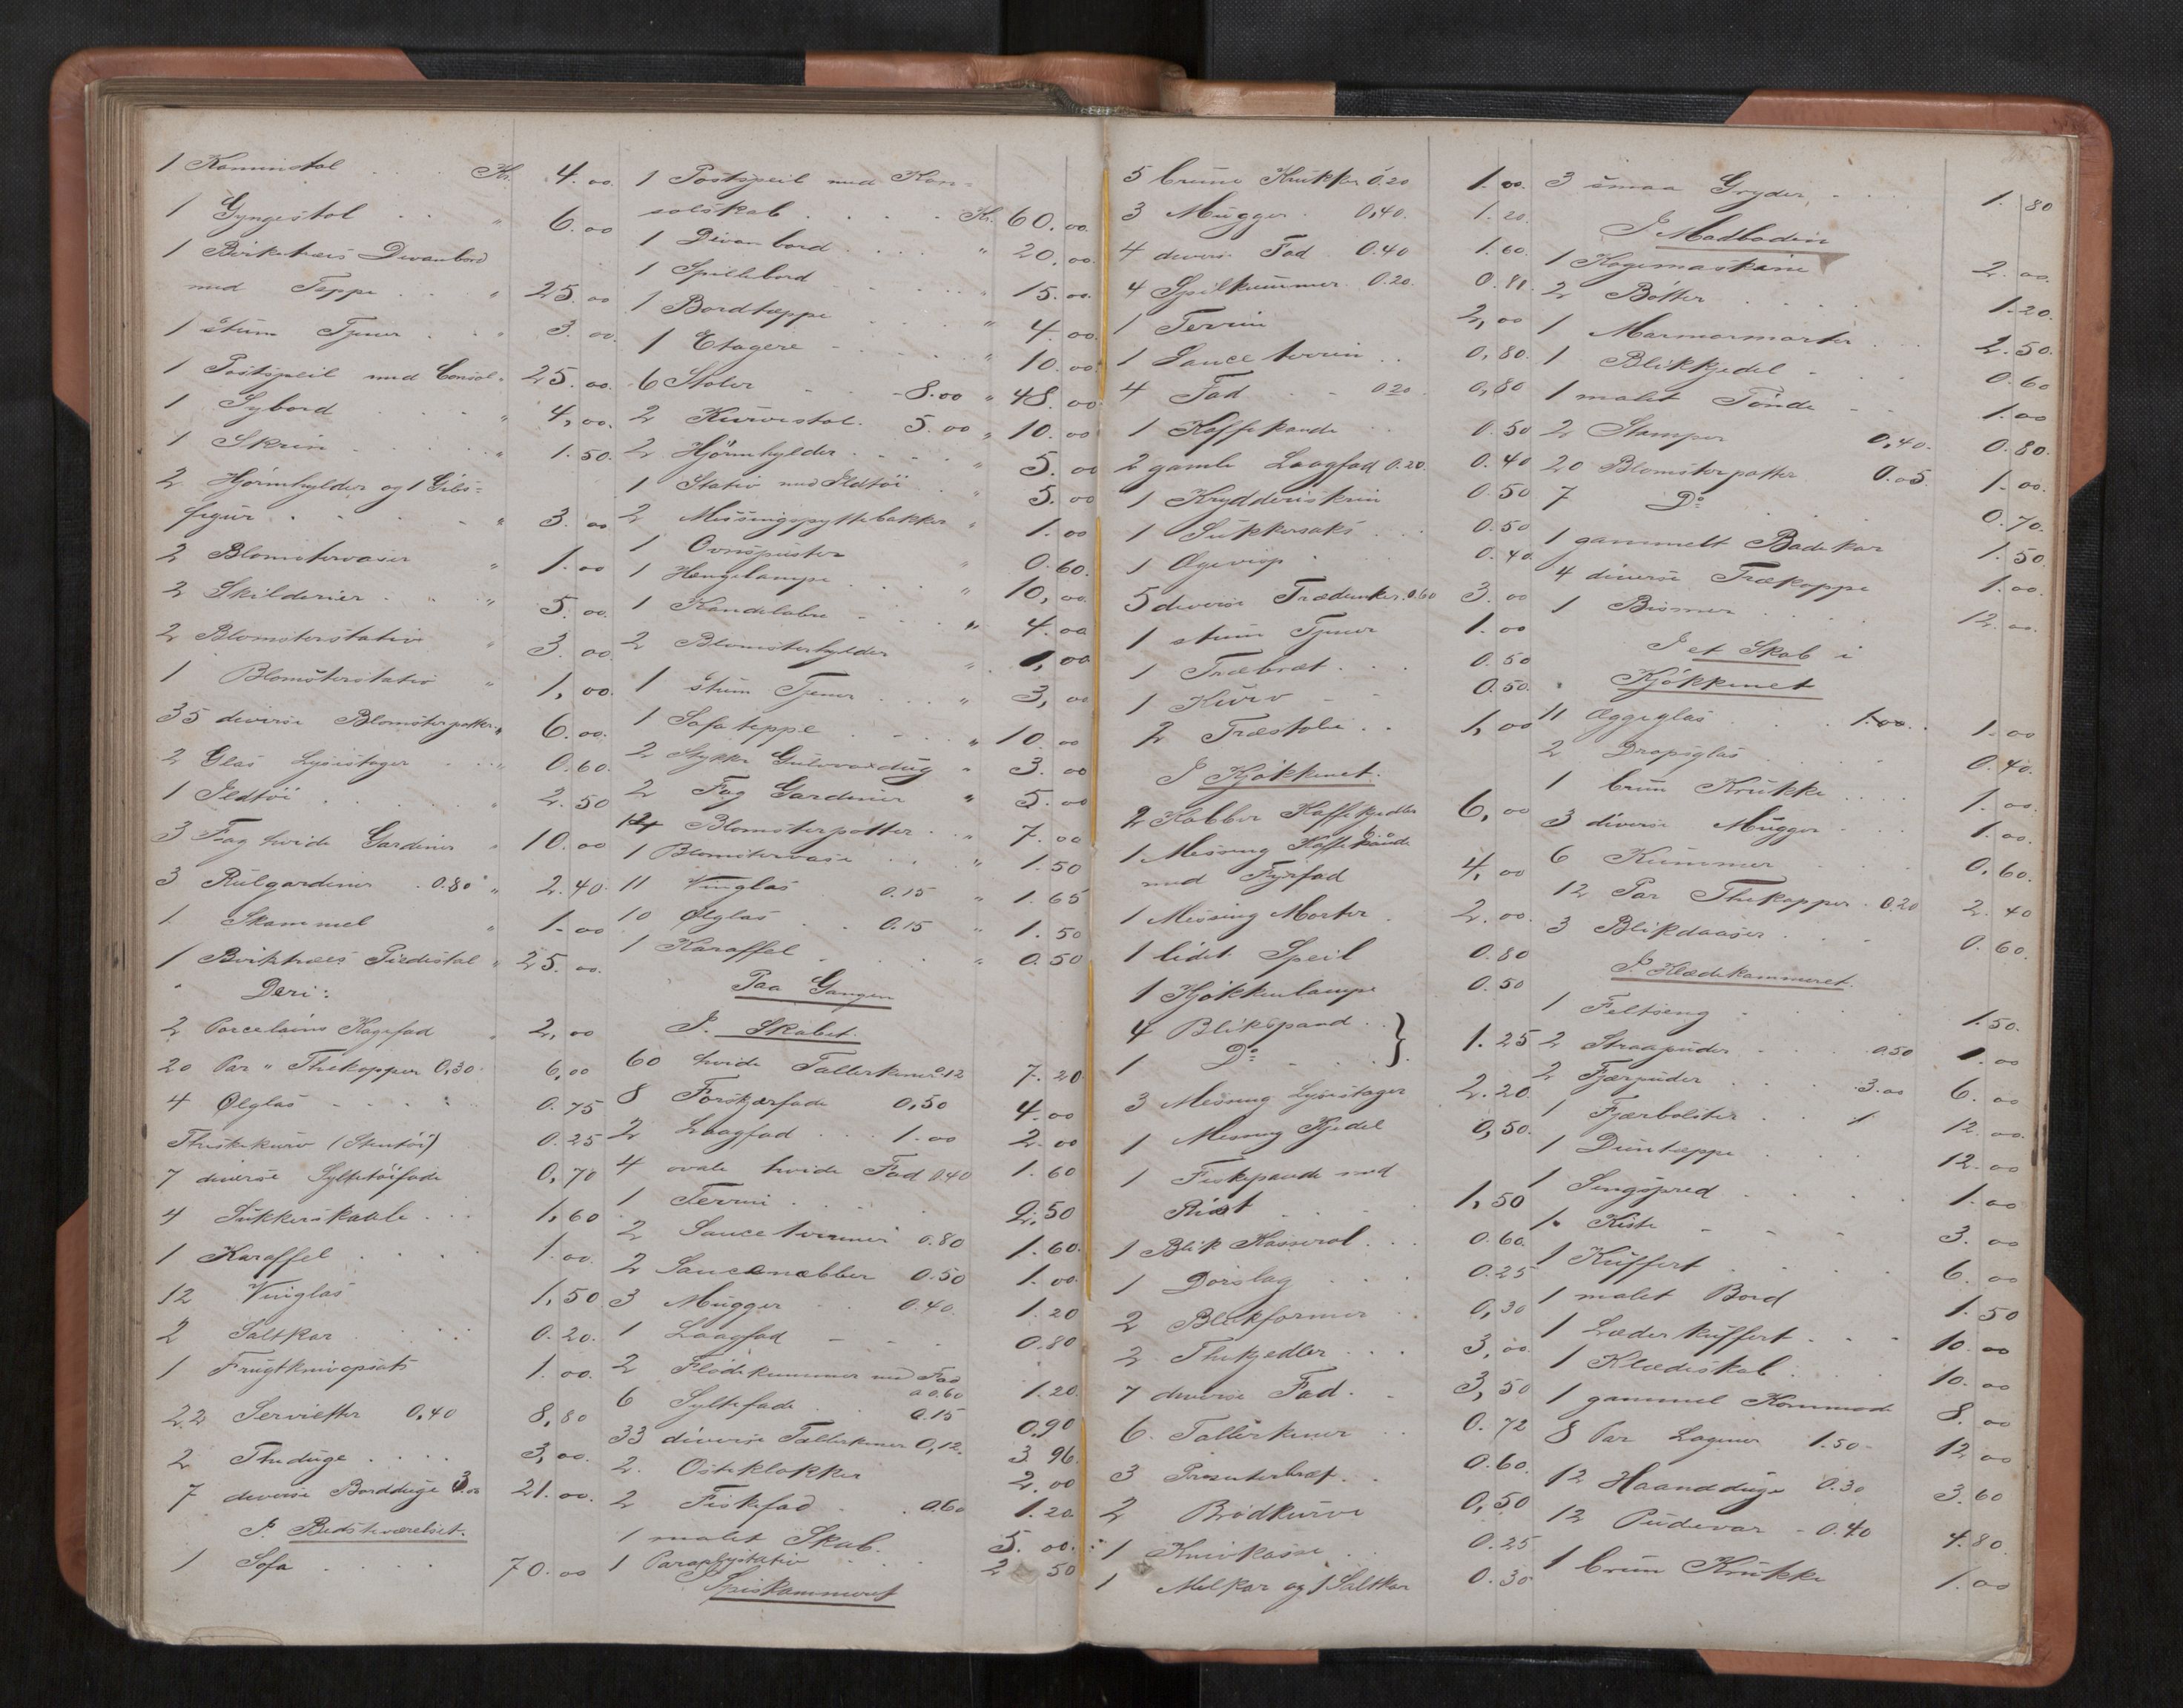 1 Kaminstol . . . Kr. 4.00
1 Gyngestol . . " 6.00
1 Birketræs Divanbord
med Teppe . . " 25.00
1 stum Tjener . . " 3.00
1 Postspeil med Consol " 25.00
1 Sybord . . . " 4,00
1 Skrin . . . . " 1.50
2 Hjørnhylder og 1 Gibs=
figur . . . . " 3.00
2 Blomstervaser " 1.00
2 Skilderier . " " 5.00
2 Blomsterstativ " 3.00
1 Blomsterstativ " 1,00
35 diverse Blomsterpotter " 6.00
2 Glas Lysestager . . " 0.60
1 Ildtöi . . . . " 2.50
3 Fag hvide Gardiner " 10.00
3 Rulgardiner . 0.80 " 2.40
1 Skammel " 1.00
1 Birktræs Piedestal " 25.00
" Deri:
2 Porcelains Kagefad " 2,00
20 Par " Thekopper 0,30 6,00
4 Ølglas - - - - 0.75
Theskekurv (Stentöi) 0.25
7 diverse Syltetöifade 0,70
4 Sukkerskaale . . . 1,60
1 Karaffel . . . . 1.00
12 Vinglas 1,50
2 Saltkar . . . 0.20
1 Frugtknivopsats 1.00
22 Servietter 0,40 8,80
2 Theduge . . . . 3,00
7 diverse Bordduge 3.00 21.00
I Bedsteværelset.
1 Sofa . . . . 70.00
1 Postspeil med Kon=
solskab . . . . Kr. 60.00
1 Divanbord . . . " 20,00
1 Spillebord . . . . " 15.00
1 Bordtæppe . . . " 4.00
1 Etagere - . . . . " 10.00
6 Stoler . . - 8.00 " 48.00
2 Kurvestol. 5.00 " 10.00
2 Hjørnhylder . . . . " 5.00
1 Stativ med Ildtöi . " 5.00
2 Messingspyttebakker " 1.00
1 Ovnspuster " 0.60
1 Hængelampe . . . . " 10,00
1 Kandelabre - . . . " 4.00
2 Blomsterhylder " 1,00
1 stum Tjener . . . " 3,00
1 Sofateppe . . . . " 10.00
2 Stykke Gulvvoxdug " 3.00
2 Fag Gardiner " 5.00
14 Blomsterpotter . . " 7.00
1 Blomstervase . . . " 1.50
11 Vinglas 0.15 " 1.65
10 Ølglas . . 0.15 " 1.50
1 Karaffel . . . . " 0.50
Paa Gangen
I. Skabet.
60 hvide Tallerkener 0.12 7.20
8 Forskjærfade 0,50 4.00
2 Laagfad . . . 1.00 2.00
4 ovale hvide Fad 0.40 1.60
1 Terrin . . . . 2.50
2 Sauceterriner 0.80 1.60
2 Saucenebber 0.50 1.00
3 Mugger . . 0.40 1.20
1 Laagfad - - - 0.80
2 Flödekummer med Fad
a 0.60 1.20
6 Syltefade . . 0.15 0.90
33 diverse Tallerkener 0,12 3.96
2 Osteklokker 2.00
2 Fiskefad . . 0.60 1.20
1 malet Skab. 5.00
1 Paraplystativ . . . . 2.50
Spiskammeret
5 brune Krukker 0.20 1.00
3 Mugger . 0,40 1.20
4 diverse Fad 0.40 1.60
4 Spilkummer 0.20 0.80
1 Terrin 2,00
1 Sauceterrin . . 0,80
4 Fad . . - 0.20 0,80
1 Kaffekande . . 0.50
2 gamle Laagfad 0.20 0.40
1 Krydderiskrin 0.50
1 Sukkersaks . . . 0.50
1 Øgevisp . . . 0.40
5 diverse Trædunker 0.60 3.00
1 stum Tjener 1.00
1 Træbræt . . . 0.50
1 Kurv - - 0.50
2 Træstole . . 1,00
I Kjökkenet.
2 Kobber Kaffekjedler 6,00
1 Messing Kaffekande
med Fyrfad 4,00
1 Messing Morter . 2.00
1 lidet Speil 0.80
1 Kjökkenlampe 0.50
4 Blikspand . . }
1 Do - - . } 1.25
3 Messing Lysestager 2.20
1 Messing Kjedel 0,50
1 Fiskepande med
Rist . . . . 1,50
1 Blik Kasserol . . . 0.60
1 Dörslag . . . . 0.25
2 Blikformer . 0,30
2 Thekjedler . . . 3,00
7 diverse Fad . - 3,50
6 Tallerkener . . 0.72
3 Presenterbræt . . 0.60
2 Brödkurve 0,50
1 Knivkasse . . 0.25
1 Melkar og 1 Saltkar 0.30
3 smaa Gryder . . . 1.80
I Madboden
1 Kogemaskine 2.00
2 Bötter . . . . 1.20
1 Marmormorter . . 2.50
1 Blikkjedel - . . . 0.60
1 malet Tönde - - 1.00
2 Stamper 0,40 0.80
20 Blomsterpotter 0.05 1.00
7 Do . . . 0.70
1 gammelt Badekar 1.50
4 diverse Trækopper 1.00
1 Bismer . . . . 12.00
I et Skab i
Kjökkenet
11 Æggeglas . . . 1.00 . 1.00
2 Dropsglas . . . . 0.40
1 brun Krukke . . . . 1.00
3 diverse Mugger . . . 1.00
6 Kummer . . 0,60
12 Par Thekopper . 0.20 2.40
3 Blikdaaser . . . . 0.60
I Klædekammeret.
1 Feltseng - . . . . 1.50
2 Straapuder . . . 0.50 1.00
2 Fjærpuder . . . . 3.00 6.00
1 Fjærbolster . . . 12.00
1 Duntæppe . . . 12.00
1 Sengspred . . . . 1.00
1 Kiste - - - 3.00
1 Kuffert . . . . . 6.00
1 malet Bord 1.50
1 Læderkuffert . . . 10.00
1 Klædeskab . . . 10.00
1 gammel Kommode 8.00
8 Par Lagener 1.50 12.00
12 Haandduge 0.30 3.60
12 Pudevar - 0.40 4.80
1 brun Krukke 1.00